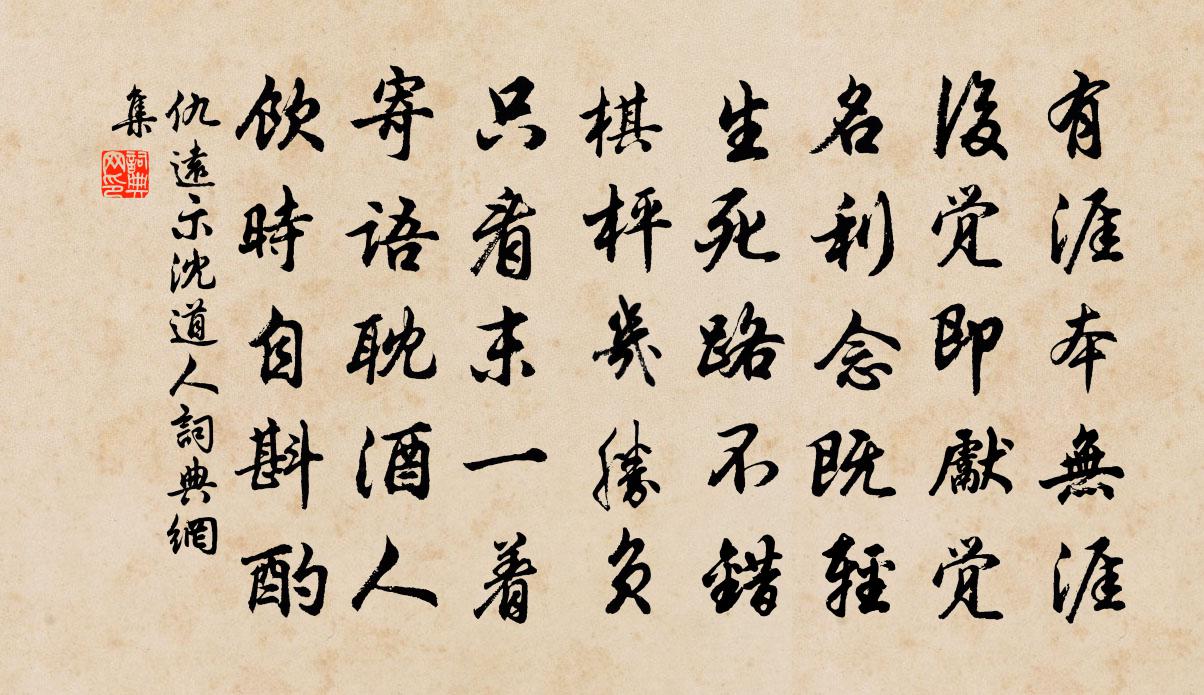 有涯本無涯
後觉即獻觉
名利念既輕
生死路不錯
棋枰幾勝負
只看末一着
寄語耽酒人
飲時自斟酌
仇遠示沈道人詞典網
集
詞典网印